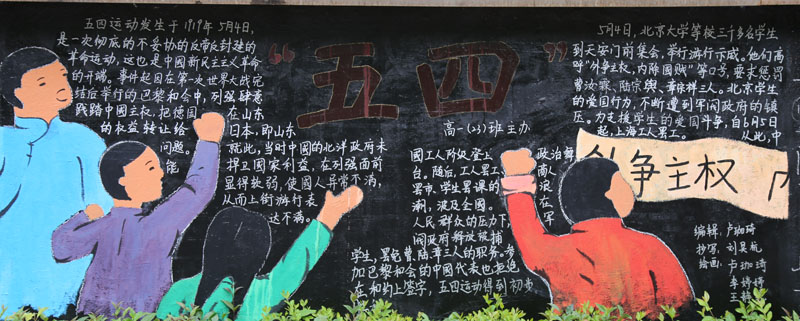 五四运动发生于1919年5月4日，
是一次彻底的不妥协的反帝反封建的
革命运动，这也是中国新民主主义革命
的开端。事件起因在第一次世界大战完
结后举行的巴黎和会中，列强肆意
践踏中国主权，把德国在山东
的权益转让给日本，即山东
问题。就此，当时中国的北洋政府未
能捍卫国家利益，在列强面前
显得软弱，使国人异常不满，
从而上街游行表
达不满。
“五四”
高一(23)班主办
5月4日，北京大学等校三千多名学生
到天安门前集会，举行游行示威。他们高
呼“外争主权，内除国贼”等口号，要求惩罚
曹汝霖、陆宗舆、章宗祥三人。北京学生
的爱国行为，不断遭到军阀政府的镇
压。为支援学生的爱国斗争，自6月5日
起，上海工人罢工。从此，中
国工人阶级登上政治舞
台。随后，工人罢工、商人
罢市、学生罢课的浪
潮，波及全国。在
人民群众的压力下，军
阀政府释放被捕
学生，罢免曹、陆、章三人的职务。参
加巴黎和会的中国代表也拒绝
在和约上签字，五四运动得到初步
外争主权
内
编辑：卢珈琦
抄写：刘昊航
绘画：卢珈琦
李婷婷
王